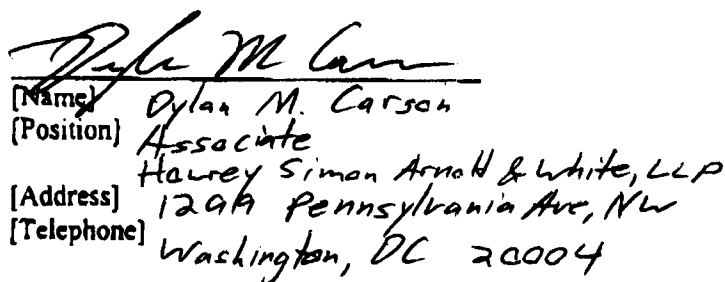 Dylan M Carson
[Name] Dylan M. Carson
[Position] Associate
Howrey Simon Arnold & White, LLP
[Address] 1299 Pennsylvania Ave, NW
[Telephone] Washington, DC 20004